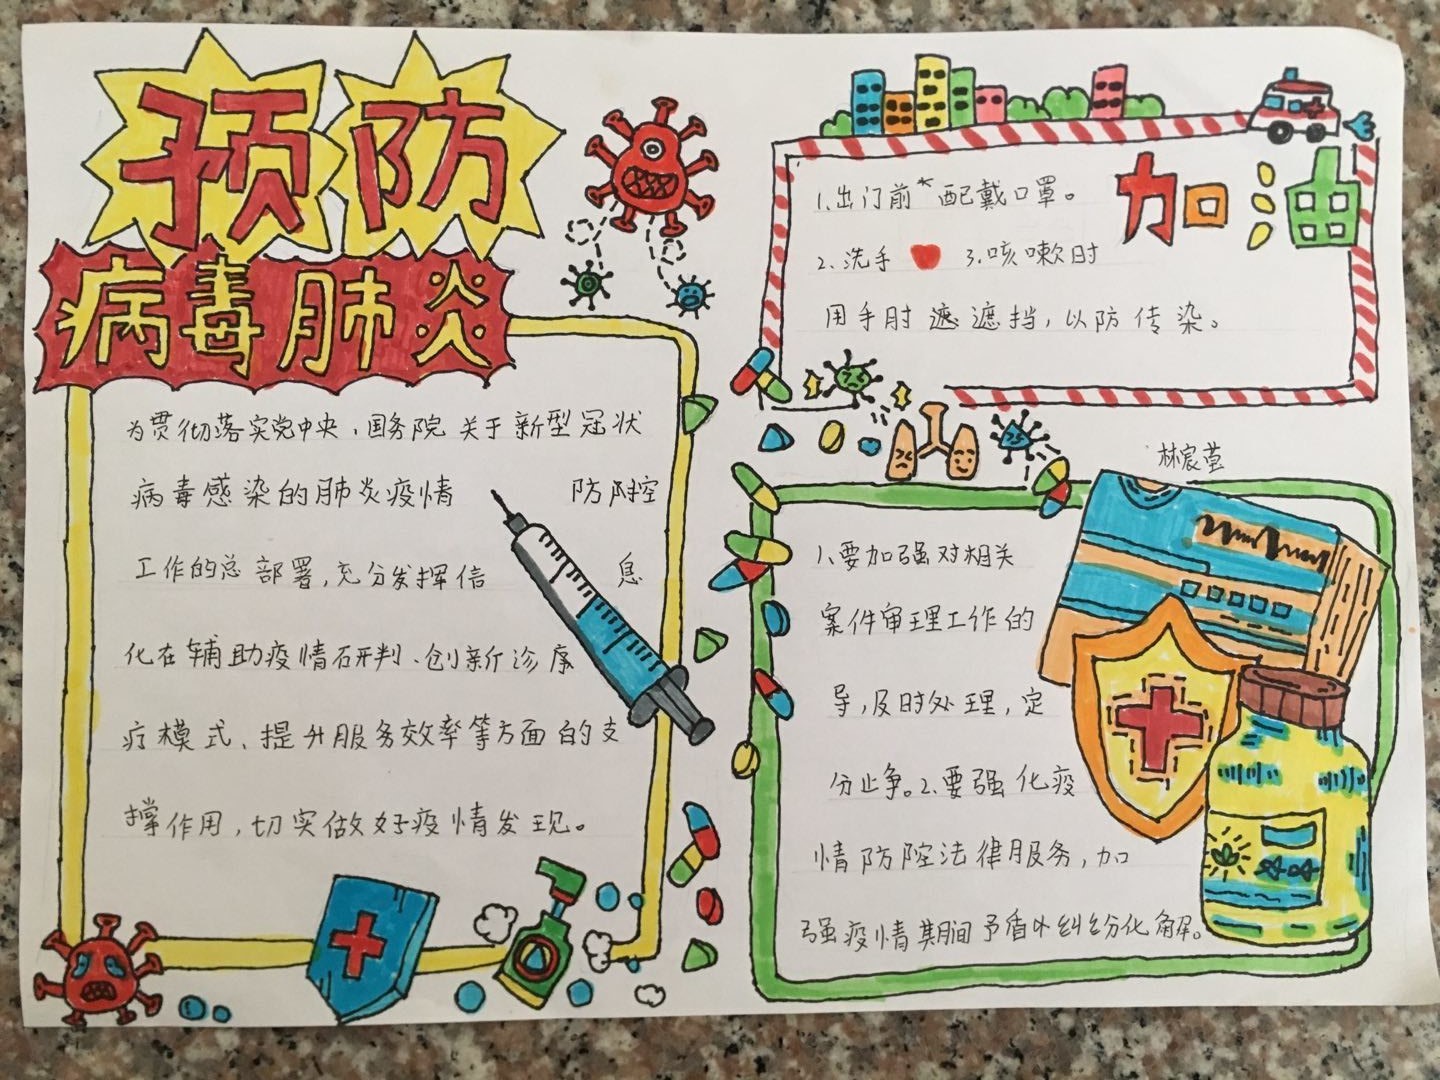 预防
病毒肺炎
为贯彻落实党中央、国务院关于新型冠状
病毒感染的肺炎疫情 防控
工作的总部署,充分发挥信 息
化在辅助疫情研判、创新诊
疗模式、提升服务效率等方面的支
撑作用,切实做好疫情发现。
加油
1.出门前*配戴口罩。
2.洗手 3.咳嗽时
用手肘遮遮挡,以防传染。
林宸莹
1.要加强对相关
案件审理工作的
导,及时处理,定
分止争。2.要强化疫
情防控法律服务,加
强疫情期间矛盾纠纷化解。